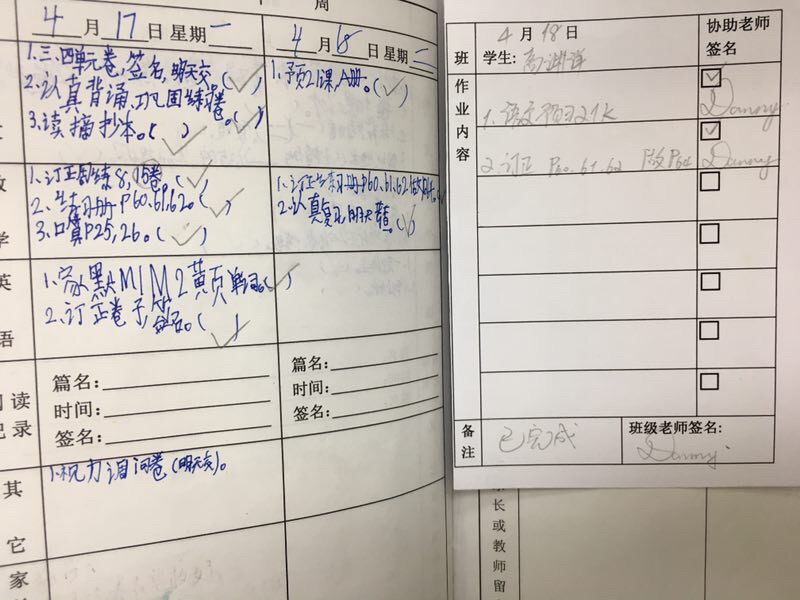 周
4月17日星期一
1.三、四单元卷,签名,明天交(✓)
2.认真背诵,巩固练习卷。(✓)
3.读摘抄本。(✓)
4月18日星期二
1.预21课,A册。(✓)
学
1.订正周练8,15卷。(✓)
2.练习册P60.61.62。(✓)
3.口算P25,26。(✓)
1.订正练习册P60.61.62
2.认真复习,明天
英
语
1.家默M1M2黄页单词。(✓)
2.订正卷子,签名。(✓)
阅读
记录
篇名:
时间:
签名:
篇名:
时间:
签名:
其
它
1.视力调问卷(明天交)。
家
班
4月18日
学生:高
协助老师
签名
作
业
内
容
1.语文预习21K
☑
Danny
2.订正 P60.61.62 做P64
☑
Danny
备
注
已完成
班级老师签名:
Danny.
长
或
教
师
留